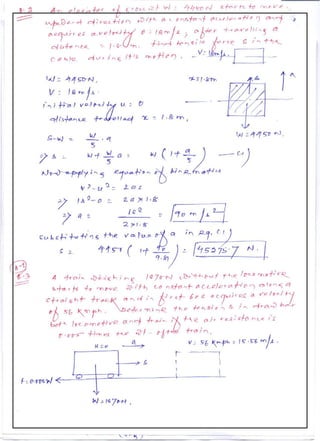 8.2 An elevator of gross wt W = 4450N starts to move
upward direction with a constant acceleration and
acquires a velocity v = 18m/s, after travelling a
distance = 1.8m. find tensile force S in the
cable during its motion.
V = 18m/s
W = 4450N,
V = 18m/s
initial velocity u = 0
distance travelled x = 1.8m,
x = 1.8m
W = 4450N.
S-W = W/g . a
⇒ S = W + W/g a = W (1 + a/g) — (1)
Now applying equation of kinematics
v² - u² = 2as
⇒ 18² - 0 = 2a × 1.8
⇒ a = 18² / 2×1.8 = 90 m/s²
Substituting the value of a in eq. (1)
S = 4450 (1 + 90/9.81) = 45275.7 N.
8.3 A train weighing 1870N without the locomotive
starts to move with constant acceleration along a
straight track and in first 60s acquires a velocity
of 56 kmph. Determine the tension S in draw bar
betn locomotive and train if the air resistance is
0.005 times the wt. of the train.
u = 0
a
V = 56 kmph = 15.56 m/s.
S
F = 0.005W
W = 1870N,